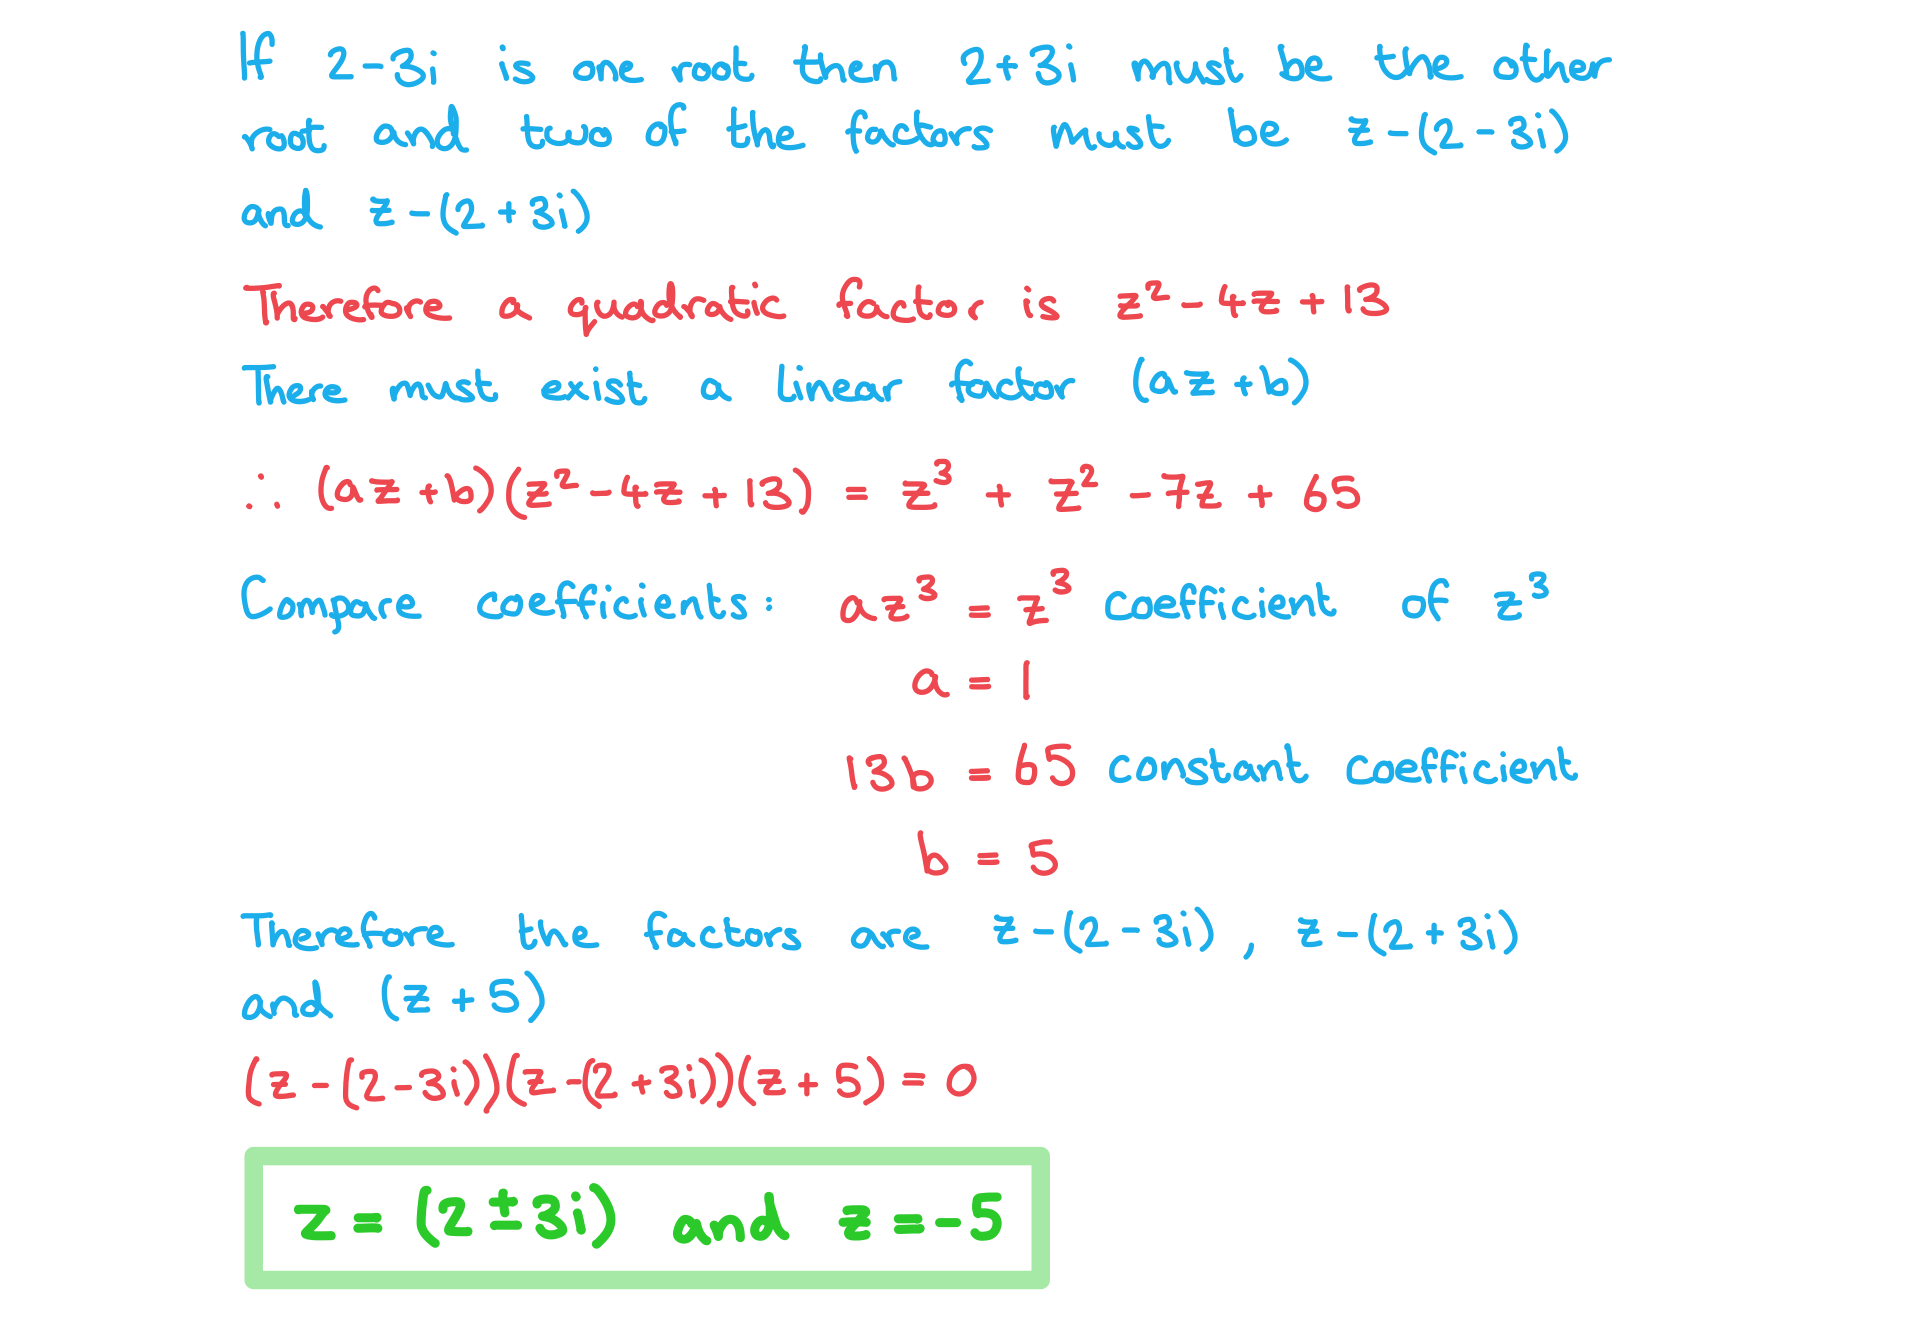 If 2-3i is one root then 2+3i must be the other
root and two of the factors must be z-(2-3i)
and z-(2+3i)
Therefore a quadratic factor is z²-4z+13
There must exist a linear factor (az+b)
∴ (az+b)(z²-4z+13) = z³ + z² -7z + 65
Compare coefficients: az³ = z³ coefficient of z³
a = 1
13b = 65 constant coefficient
b = 5
Therefore the factors are z-(2-3i), z-(2+3i)
and (z+5)
(z-(2-3i))(z-(2+3i))(z+5) = 0
z = (2±3i) and z = -5